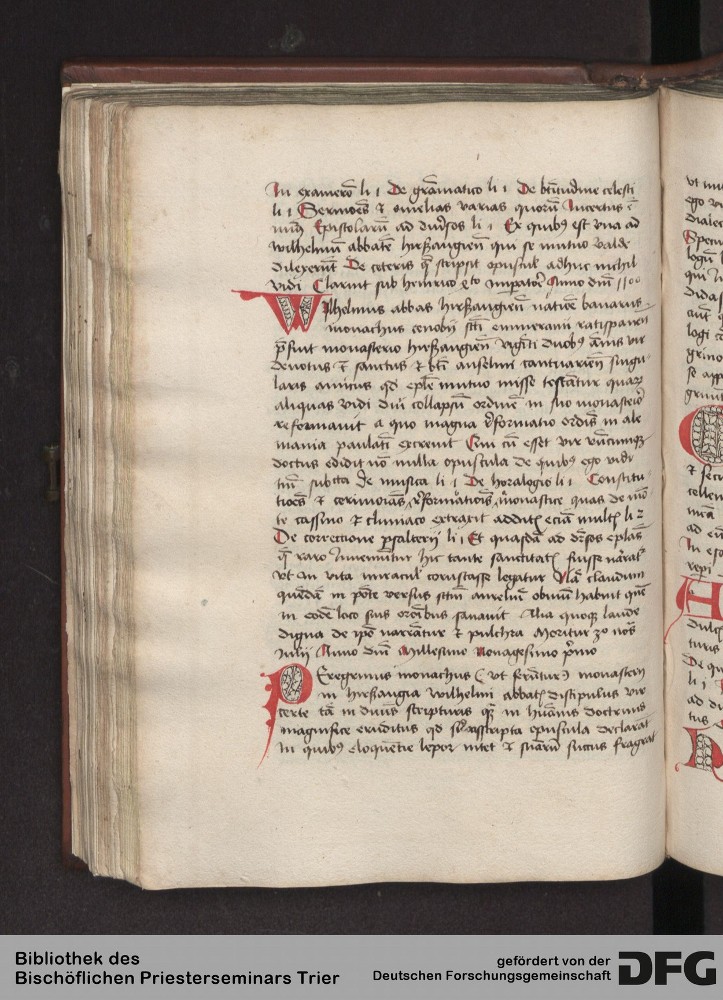 In exameroñ li i De gram̃atico li i De btĩtudine celesti
li i Sermões ⁊ omelias varias quorũ Incertus ẽ
nũs Epistolarũ ad diũsos li i Ex quibꝰ est vna ad
wilhelmũ abbatẽ hirßaugieñ qui se mutuo valde
dilexerũt De ceteris q̃ scripsit opuscul adhuc nichil
vidi Claruit sub heinrico 4to Impatoꝛ Anno dm̃ 1100
Wilhelmus abbas hirßaugieñ natiõe bauarus
monachus cenobij sct̃i emmerami ratisponeñ
p̃fuit monasterio hirßaugieñ viginti duobꝰ ãnis vir
deuotus ⁊ sanctus ⁊ btĩ anselmi cantuarieñ singu-
laris amicus qd̃ ep̃le mutuo misse testãtur quaꝝ
aliquas vidi diu collapsũ ordinẽ in suo monasterio
reformauit a quo magna r̃formatio ordĩs in ale
mania paulati excreuit Qui cũ esset vir vtrũcunqꝫ
doctus edidit nõ nulla opuscula de quibꝰ ego vidi
tm̃ subiecta De musica li i De horalogio li i Constitu-
tiões ⁊ cerimoias r̃formationis monastice quas de mõ
te cassino ⁊ cluniaco extraxit additis eciã multis li 2
De correctione psalterij li i Et quasdã ad diũsos eplas
q̃ raro Inueniũtur hic tante sanctitatis fuisse narat̃
vt in vita miracul coruscasse legatur Nã claudum
quẽdã in põte versus sct̃m aureliũ obuiũ habuit quẽ
in eodẽ loco suis orõibus sanauit Alia quoqꝫ laude
digna de ipõ narrãtur ⁊ pulchra Moritur 3o noñ
Iulij Anno dm̃ Millesimo Nonagesimo p̃mo
Peregrinus monachus (vt ferũtur) monasterij
in hirßaugia wilhelmi abbatis discipulus vir
certe tã in diuinis scripturis qꝫ in hũanis doctrinis
magnifice eruditus qd̃ suprascripta opuscula declarãt
in quibꝰ eloquẽtie lepor nitet ⁊ suarũ succus fragrat
Bibliothek des
Bischöflichen Priesterseminars Trier
gefördert von der
Deutschen Forschungsgemeinschaft
DFG